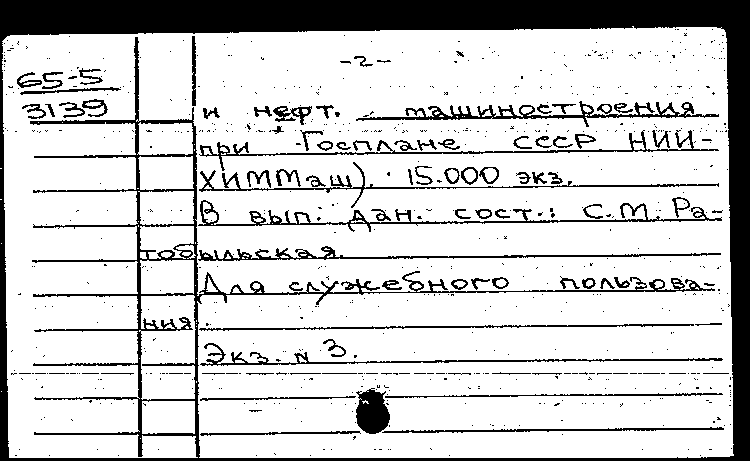 -2-
65-5
3139
и нефт. машиностроения
при Госплане СССР НИИ-
ХИММаш). 15.000 экз.
В вып. дан. сост.: С.М. Ра-
тобыльская.
Для служебного пользова-
ния.
Экз. N 3.